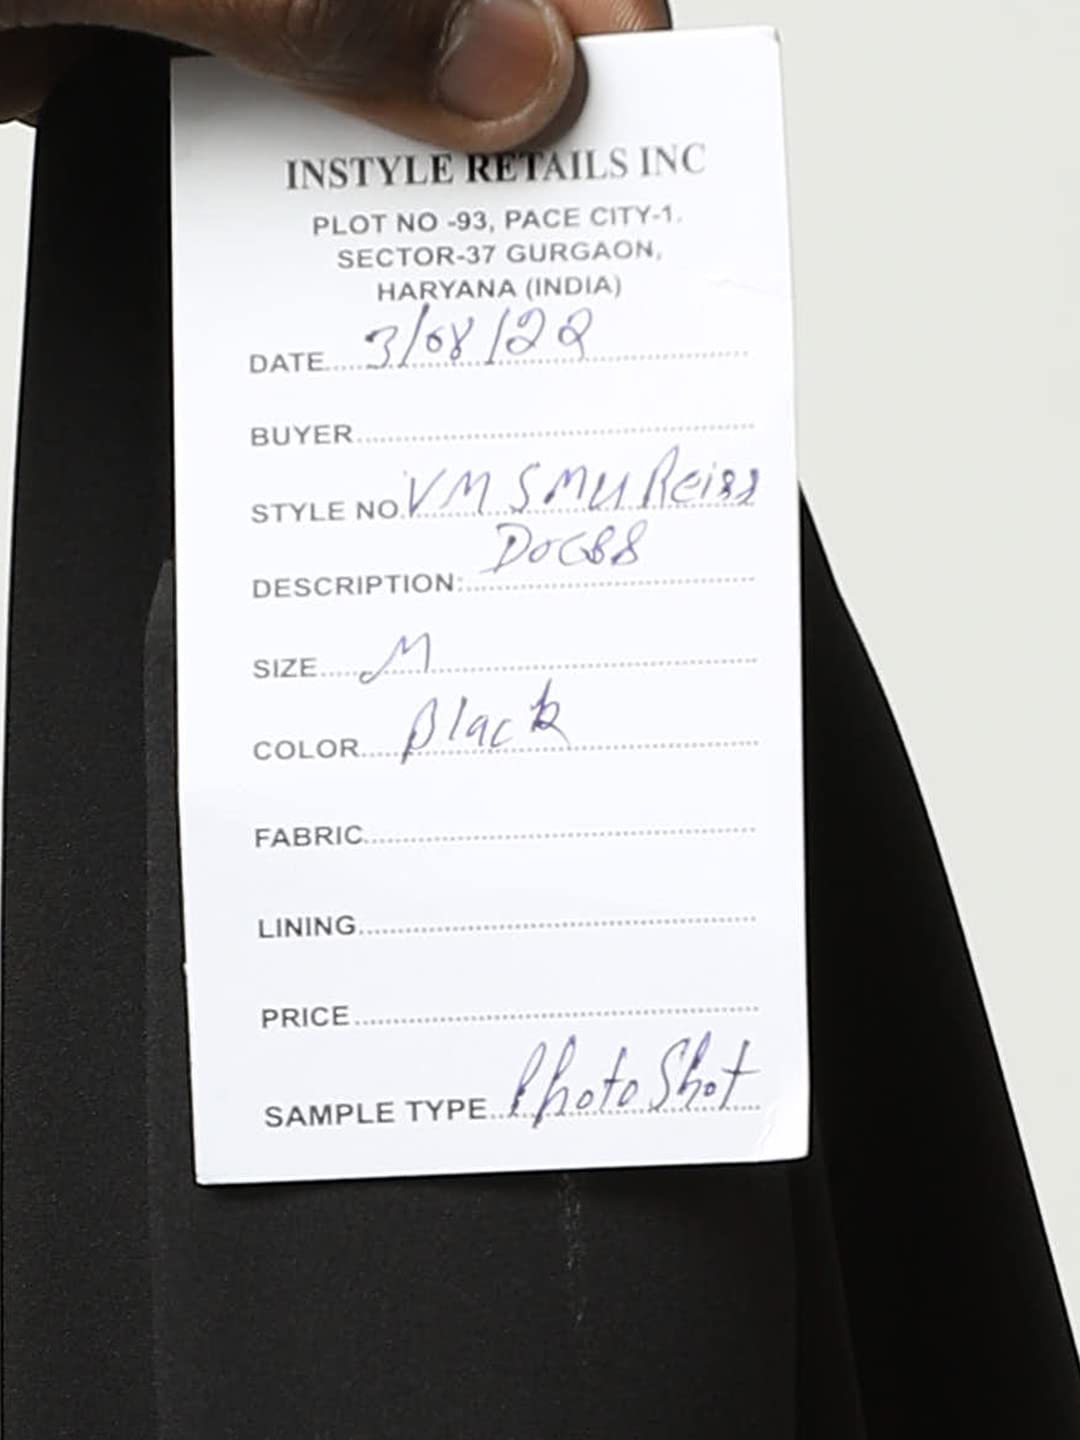 INSTYLE RETAILS INC
PLOT NO -93, PACE CITY-1.
SECTOR-37 GURGAON,
HARYANA (INDIA)
DATE 3/08/22
BUYER
STYLE NO. VM SMU Reiss
DESCRIPTION:
SIZE M
COLOR Black
FABRIC
LINING
PRICE
SAMPLE TYPE Photo Shot